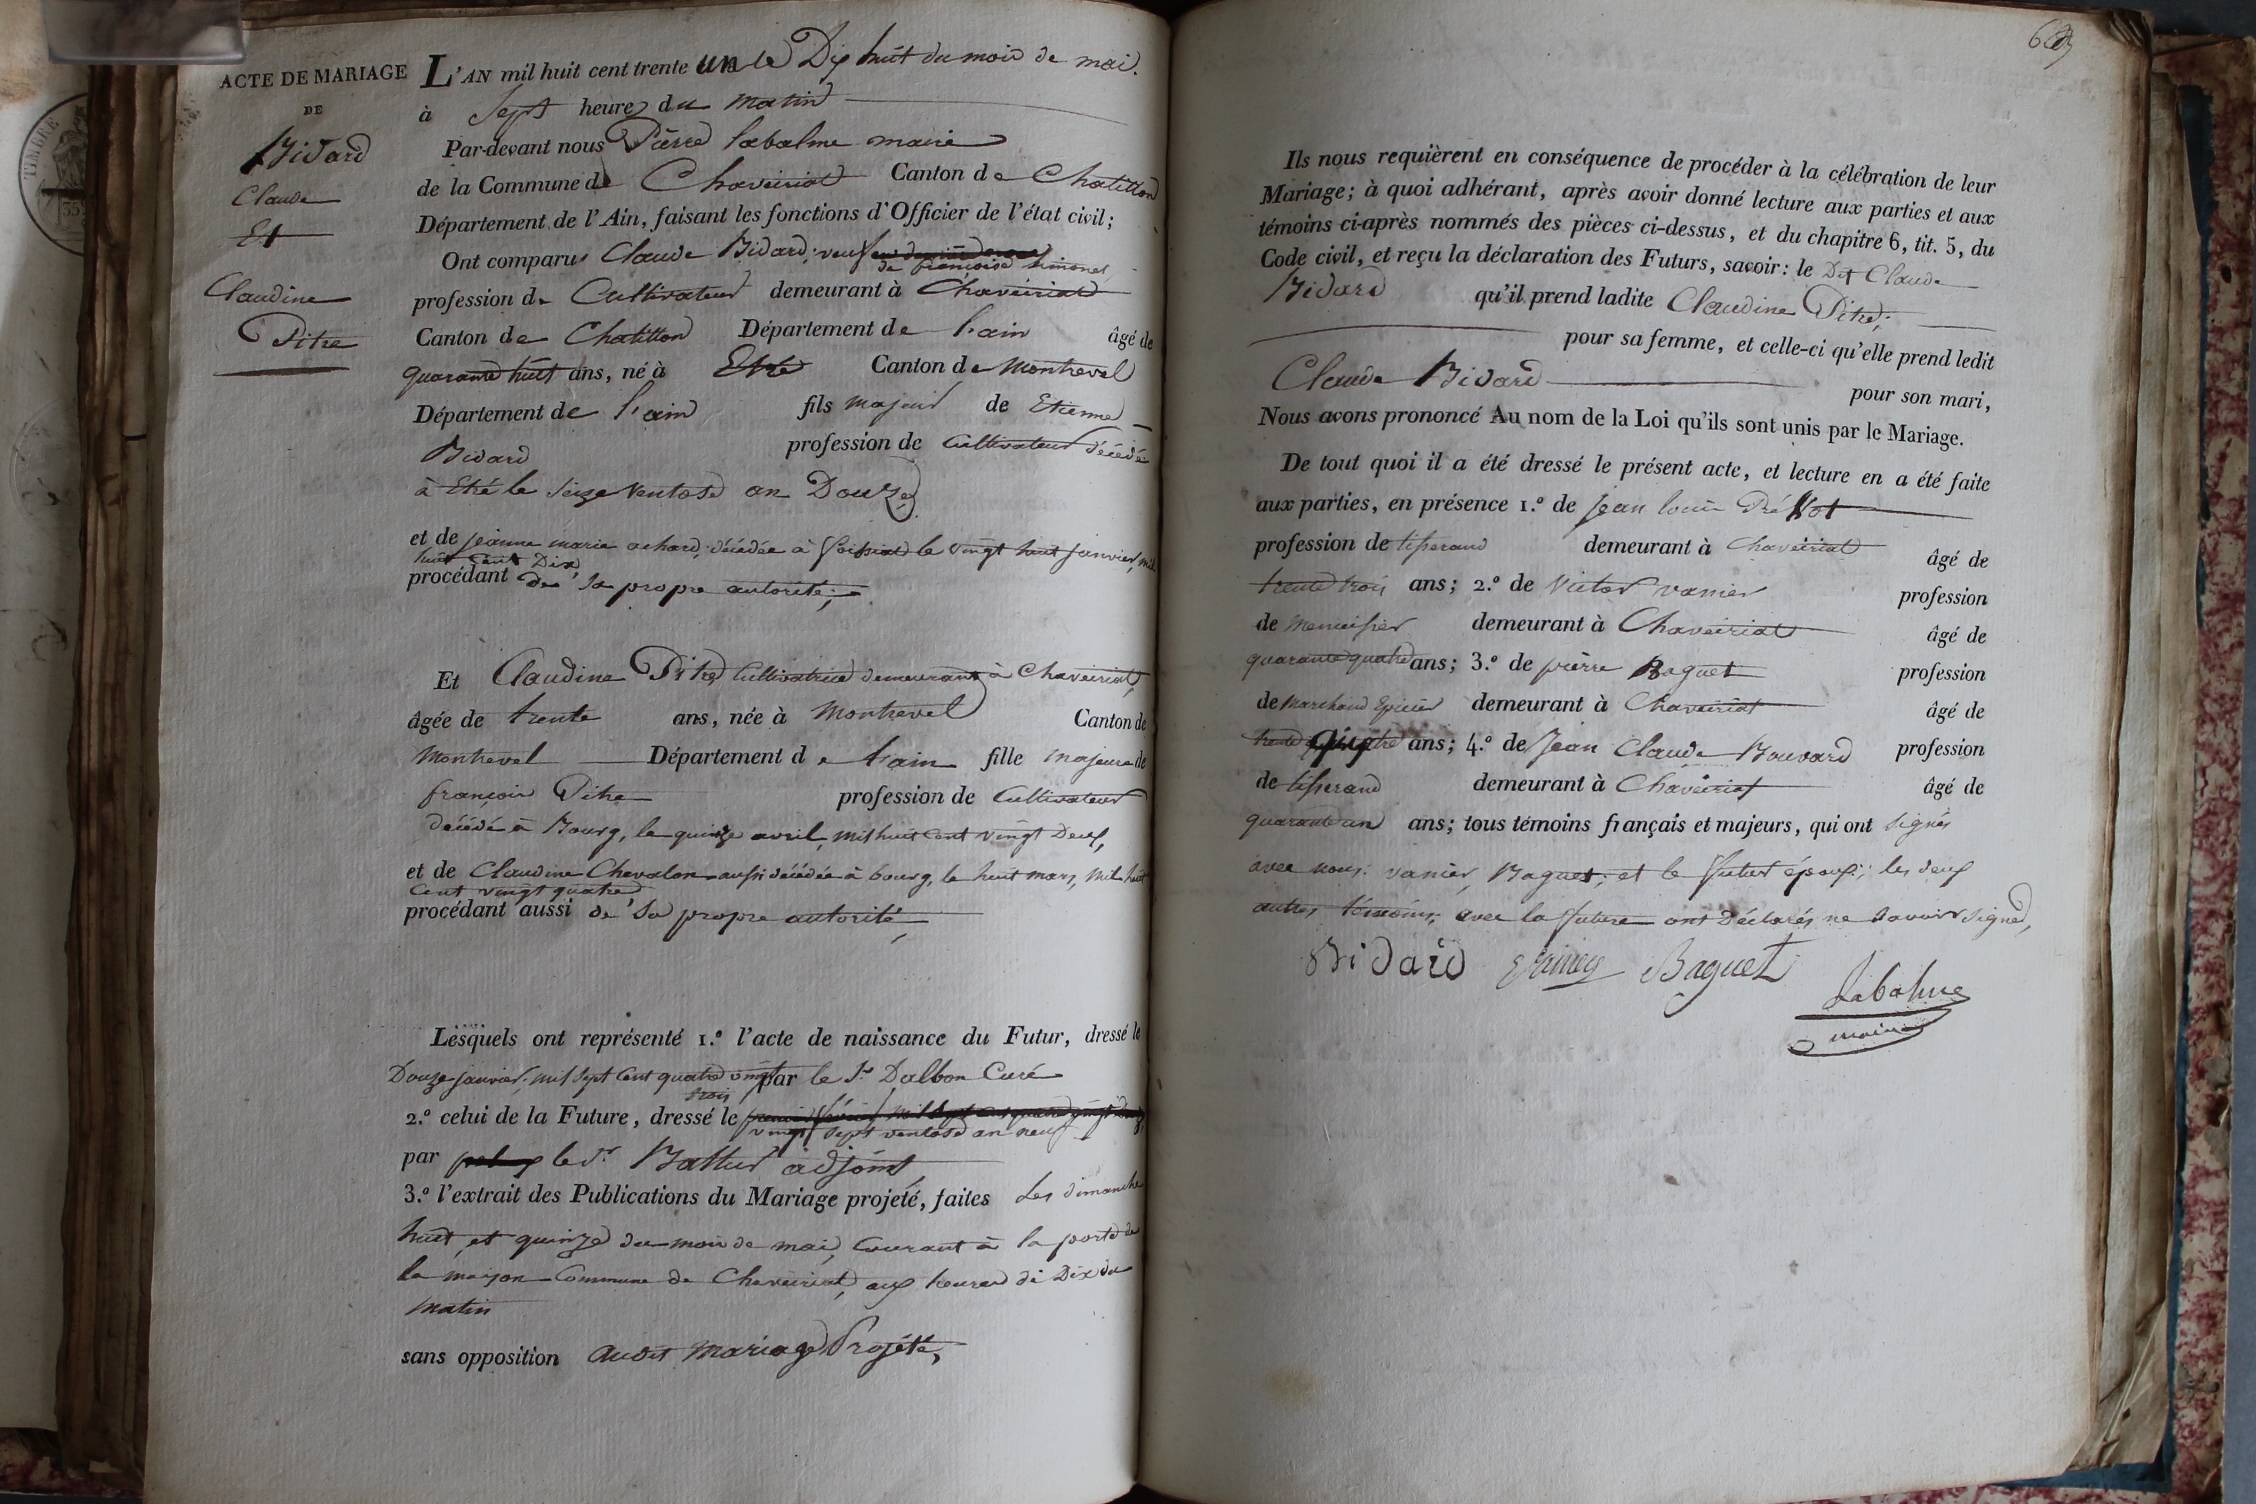 ACTE DE MARIAGE
DE
Bidard
Claude
Et
Claudine
Pitre
L'AN mil huit cent trente un le Dix huit du mois de mai.
à Sept heures du matin
Par-devant nous Pierre Labalme maire
de la Commune de Chaveiriat Canton de Chatillon
Département de l'Ain, faisant les fonctions d'Officier de l'état civil;
Ont comparus Claude Bidard, veuf
de françoise Simonet
profession de Cultivateur demeurant à Chaveiriat
Canton de Chatillon Département de l'ain âgé de
quarante huit ans, né à Etré Canton de Montrevel
Département de l'ain fils majeur de Etienne
Bidard profession de Cultivateur décédé
à Etré le Seize Ventose an Douze
et de jeanne marie achard, décédée à foissiat le vingt huit janvier, mil
huit cent Dix,
procédant de sa propre autorité;
Et Claudine Pitre Cultivatrice demeurant à Chaveiriat,
âgée de trente ans, née à Montrevel Canton de
Montrevel Département de l'ain fille majeure de
françois Pitre profession de Cultivateur
décédé à Bourg, le quinze avril, mil huit cent vingt Deux,
et de Claudine Chevalon aussi décédée à bourg, le huit mars, mil huit
Cent vingt quatre,
procédant aussi de Sa propre autorité,
Lesquels ont représenté 1.º l'acte de naissance du Futur, dressé le
Douze janvier, mil Sept Cent quatre vingt par le Sr Dalbon Curé
trois
2.º celui de la Future, dressé le
vingt Sept ventose an neuf
par le Sr adjoint
3.º l'extrait des Publications du Mariage projeté, faites Les dimanche
huit et quinze du mois de mai, Courant à la porte de
la maison Commune de Chaveiriat, aux heures de Dix du
matin
sans opposition audit mariage Projété,
Ils nous requièrent en conséquence de procéder à la célébration de leur
Mariage; à quoi adhérant, après avoir donné lecture aux parties et aux
témoins ci-après nommés des pièces ci-dessus, et du chapitre 6, tit. 5, du
Code civil, et reçu la déclaration des Futurs, savoir: le Dit Claude
Bidard qu'il prend ladite Claudine Pitre,
pour sa femme, et celle-ci qu'elle prend ledit
Claude Bidard pour son mari,
Nous avons prononcé Au nom de la Loi qu'ils sont unis par le Mariage.
De tout quoi il a été dressé le présent acte, et lecture en a été faite
aux parties, en présence 1.º de Jean louis
profession de tisserand demeurant à Chaveiriat âgé de
trente trois ans; 2.º de Victor vanier profession
de Menuisier demeurant à Chaveiriat âgé de
quarante quatre ans; 3.º de pierre Baguet profession
de Marchand Epicier demeurant à Chaveiriat âgé de
trente ans; 4.º de Jean Claude Bouvard profession
de tisserand demeurant à Chaveiriat âgé de
quarante un ans; tous témoins français et majeurs, qui ont signés
avec nous: vanier, Baguet, et le futur époux; les deux
autres témoins, avec la future ont Déclarés ne savoir signer,
Bidard Vanier Baguet
Labalme
maire